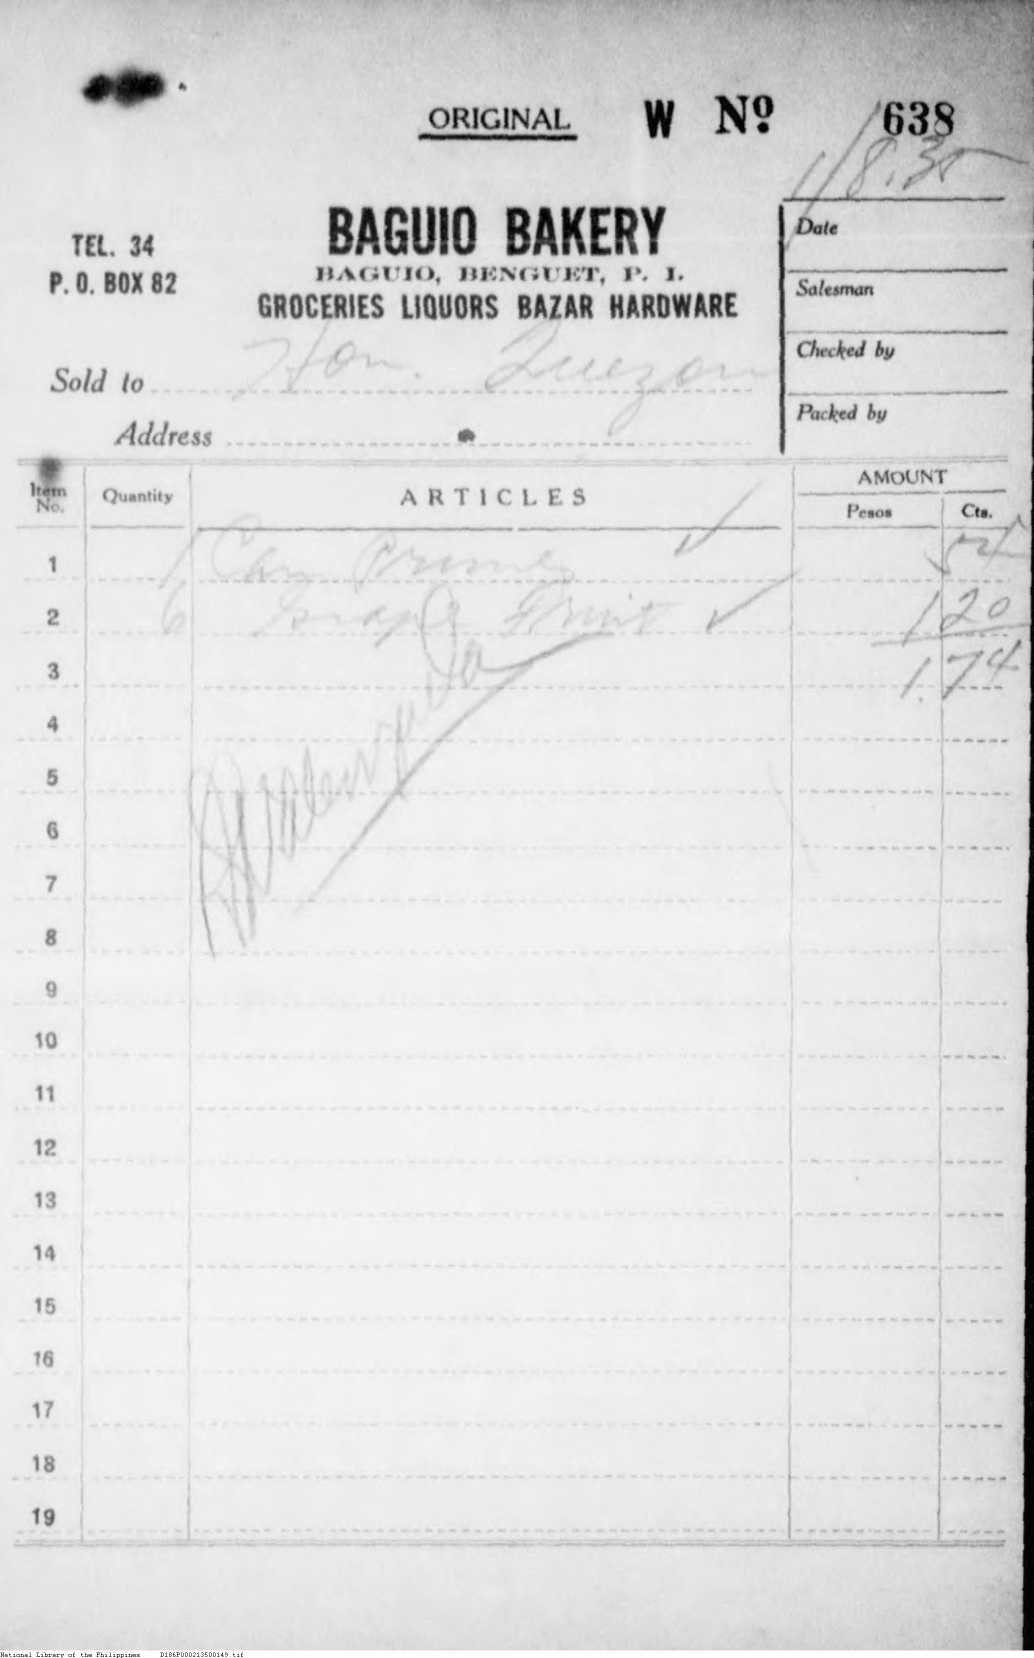 ORIGINAL W Nº 638
1/8.35
TEL. 34
P. O. BOX 82
BAGUIO BAKERY
BAGUIO, BENGUET, P. I.
GROCERIES LIQUORS BAZAR HARDWARE
Date
Salesman
Checked by
Packed by
Sold to Hon. Quezon
Address
Item No. Quantity ARTICLES AMOUNT
Pesos Cts.
1 1 Can Prunes ✓ 54
2 6 Grape Fruit ✓ 1 20
3 1.74
4
5
6
7
8
9
10
11
12
13
14
15
16
17
18
19
National Library of the Philippines D186P000213500149.tif